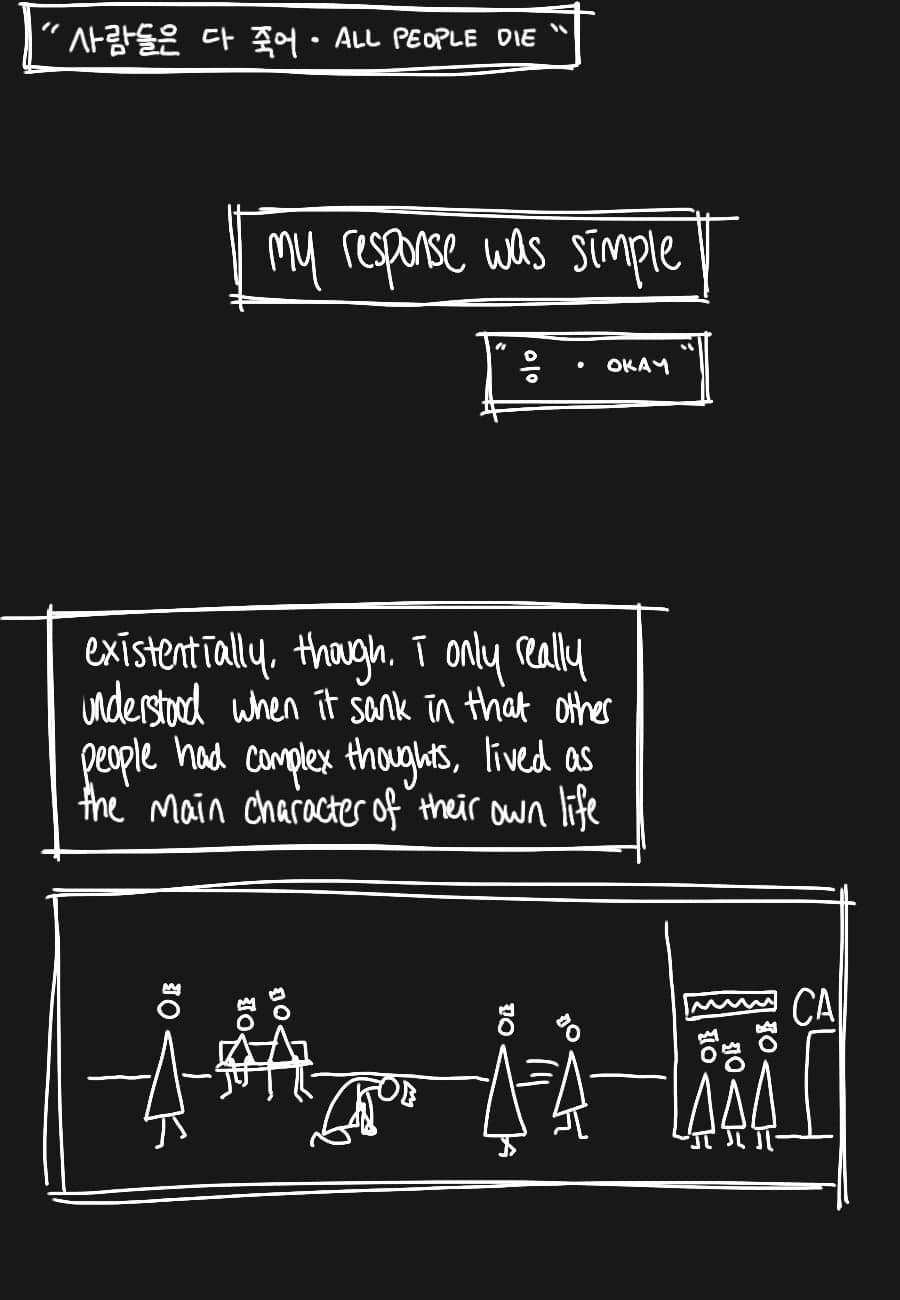 “ 사람들은 다 죽어 • ALL PEOPLE DIE ”
my response was simple
“ 응 • OKAY ”
existentially, though, i only really
understood when it sank in that other
people had complex thoughts, lived as
the main character of their own life
CA